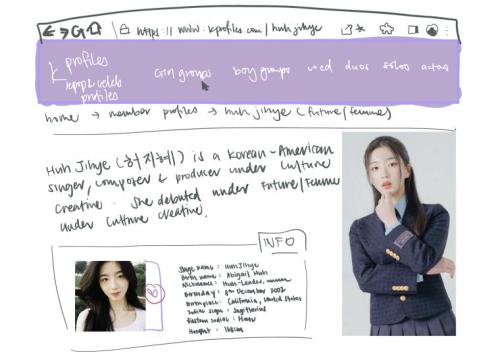 https://www.kprofiles.com/huhjihye
k profiles
kpop & celeb
profiles
Girl groups boy groups coed duos solos actors
home → member profiles → huh jihye (future/femme)
Huh Jihye (허지혜) is a Korean-American
singer, composer & producer under Culture
Creative. She debuted under Future/Femme
under Culture Creative.
INFO
Stage name: Huh Jihye
Birth name: Abigail Huh
Nicknames: Huh-Leader,
Birthday: 8th December 2002
Birthplace: California, United States
Zodiac sign: Sagittarius
Eastern zodiac: Horse
Height: 168cm